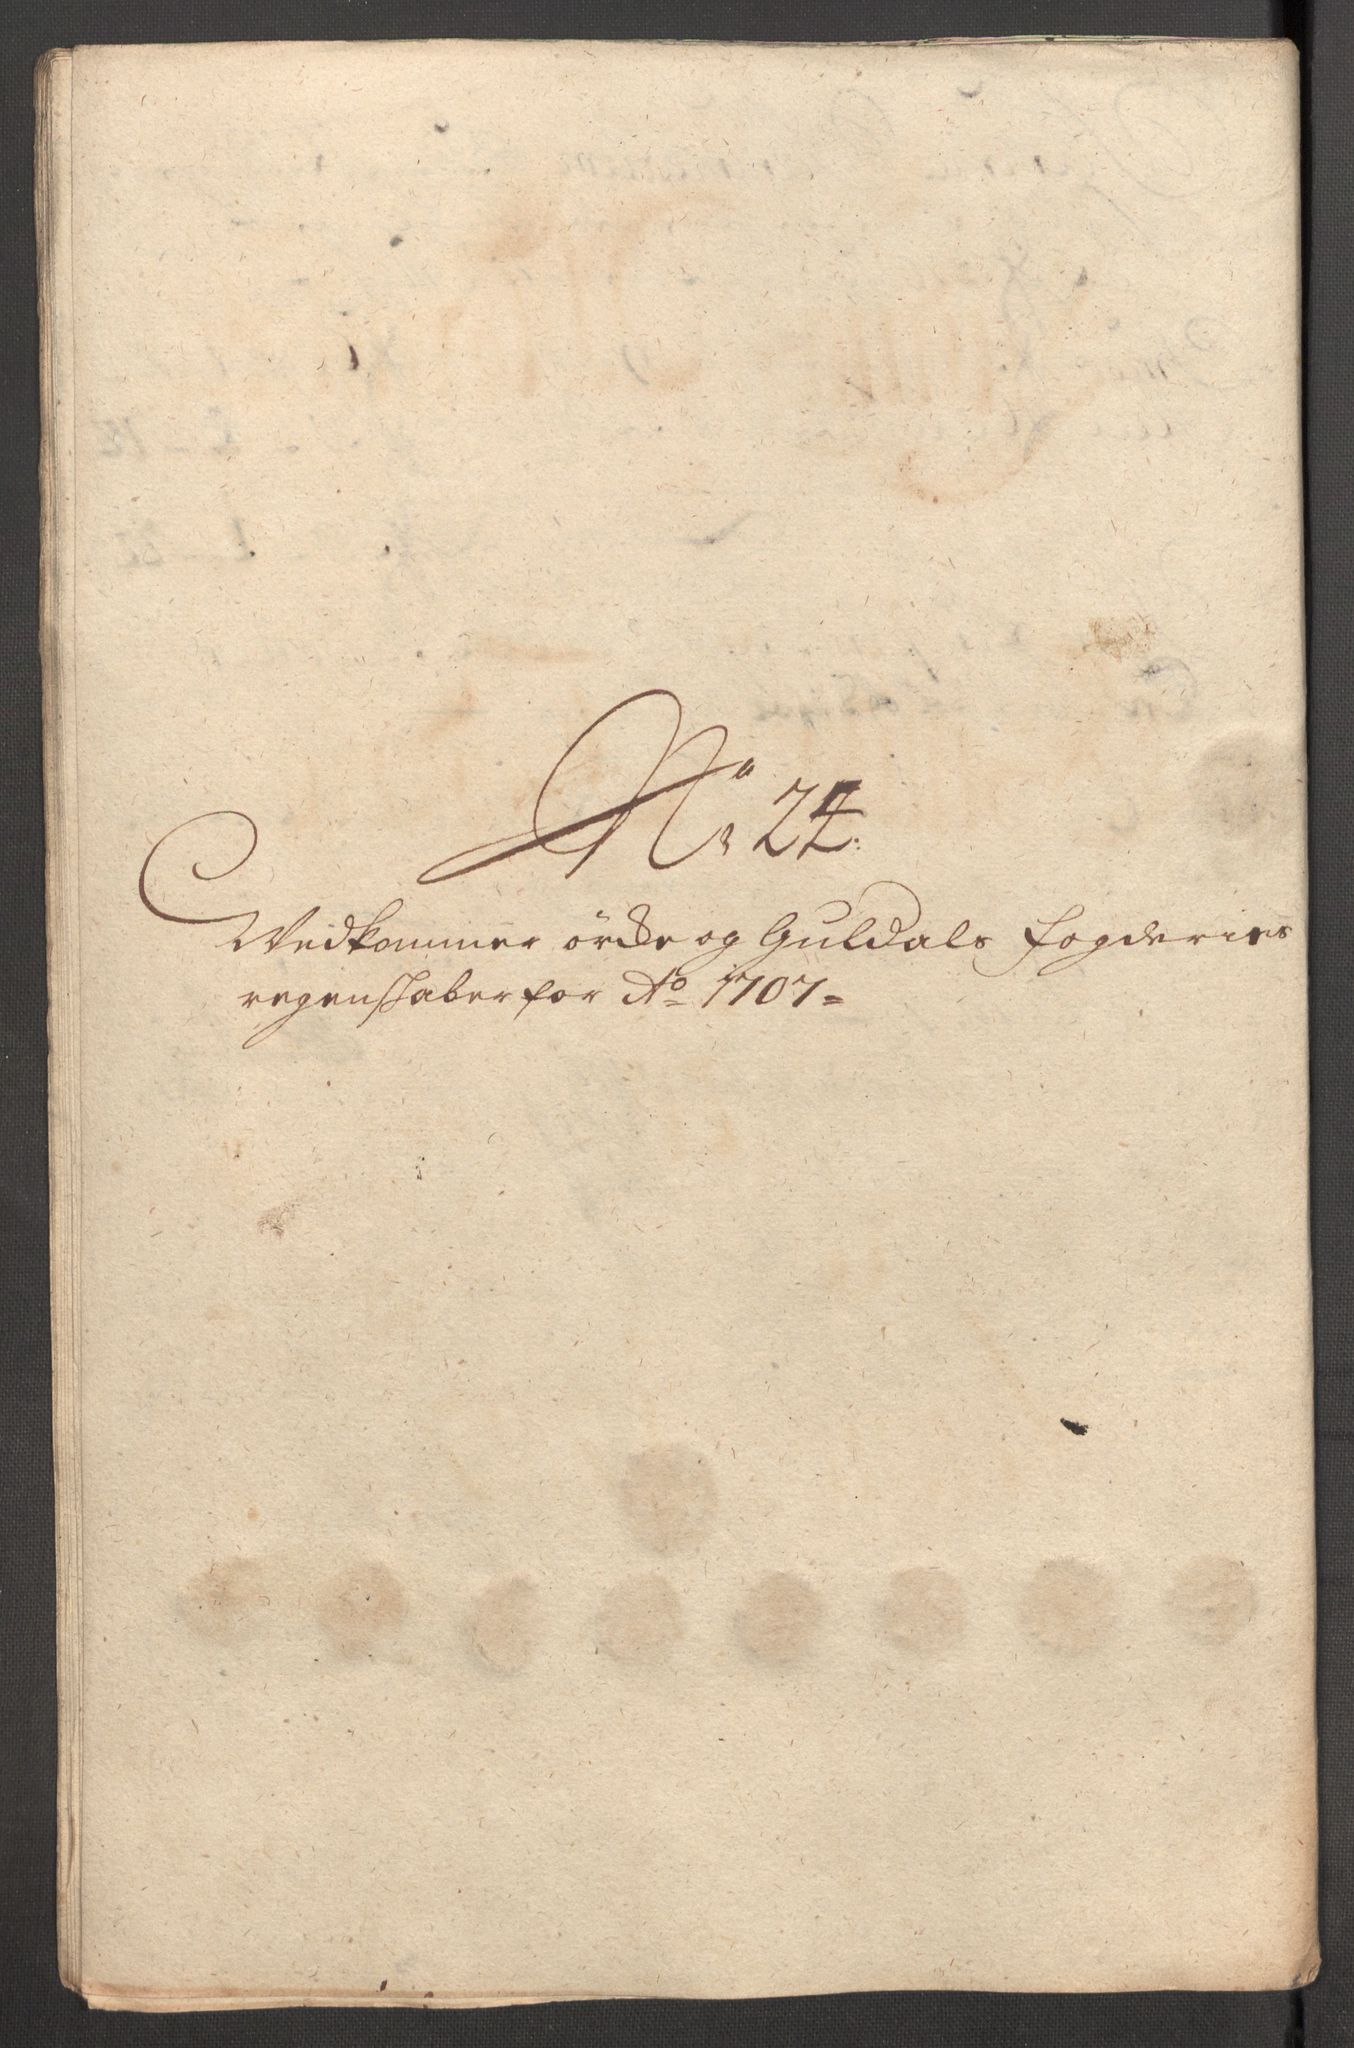 No 24.
Vedkommer örche og Guldals fogderies
regenskaber for Ao 1707=